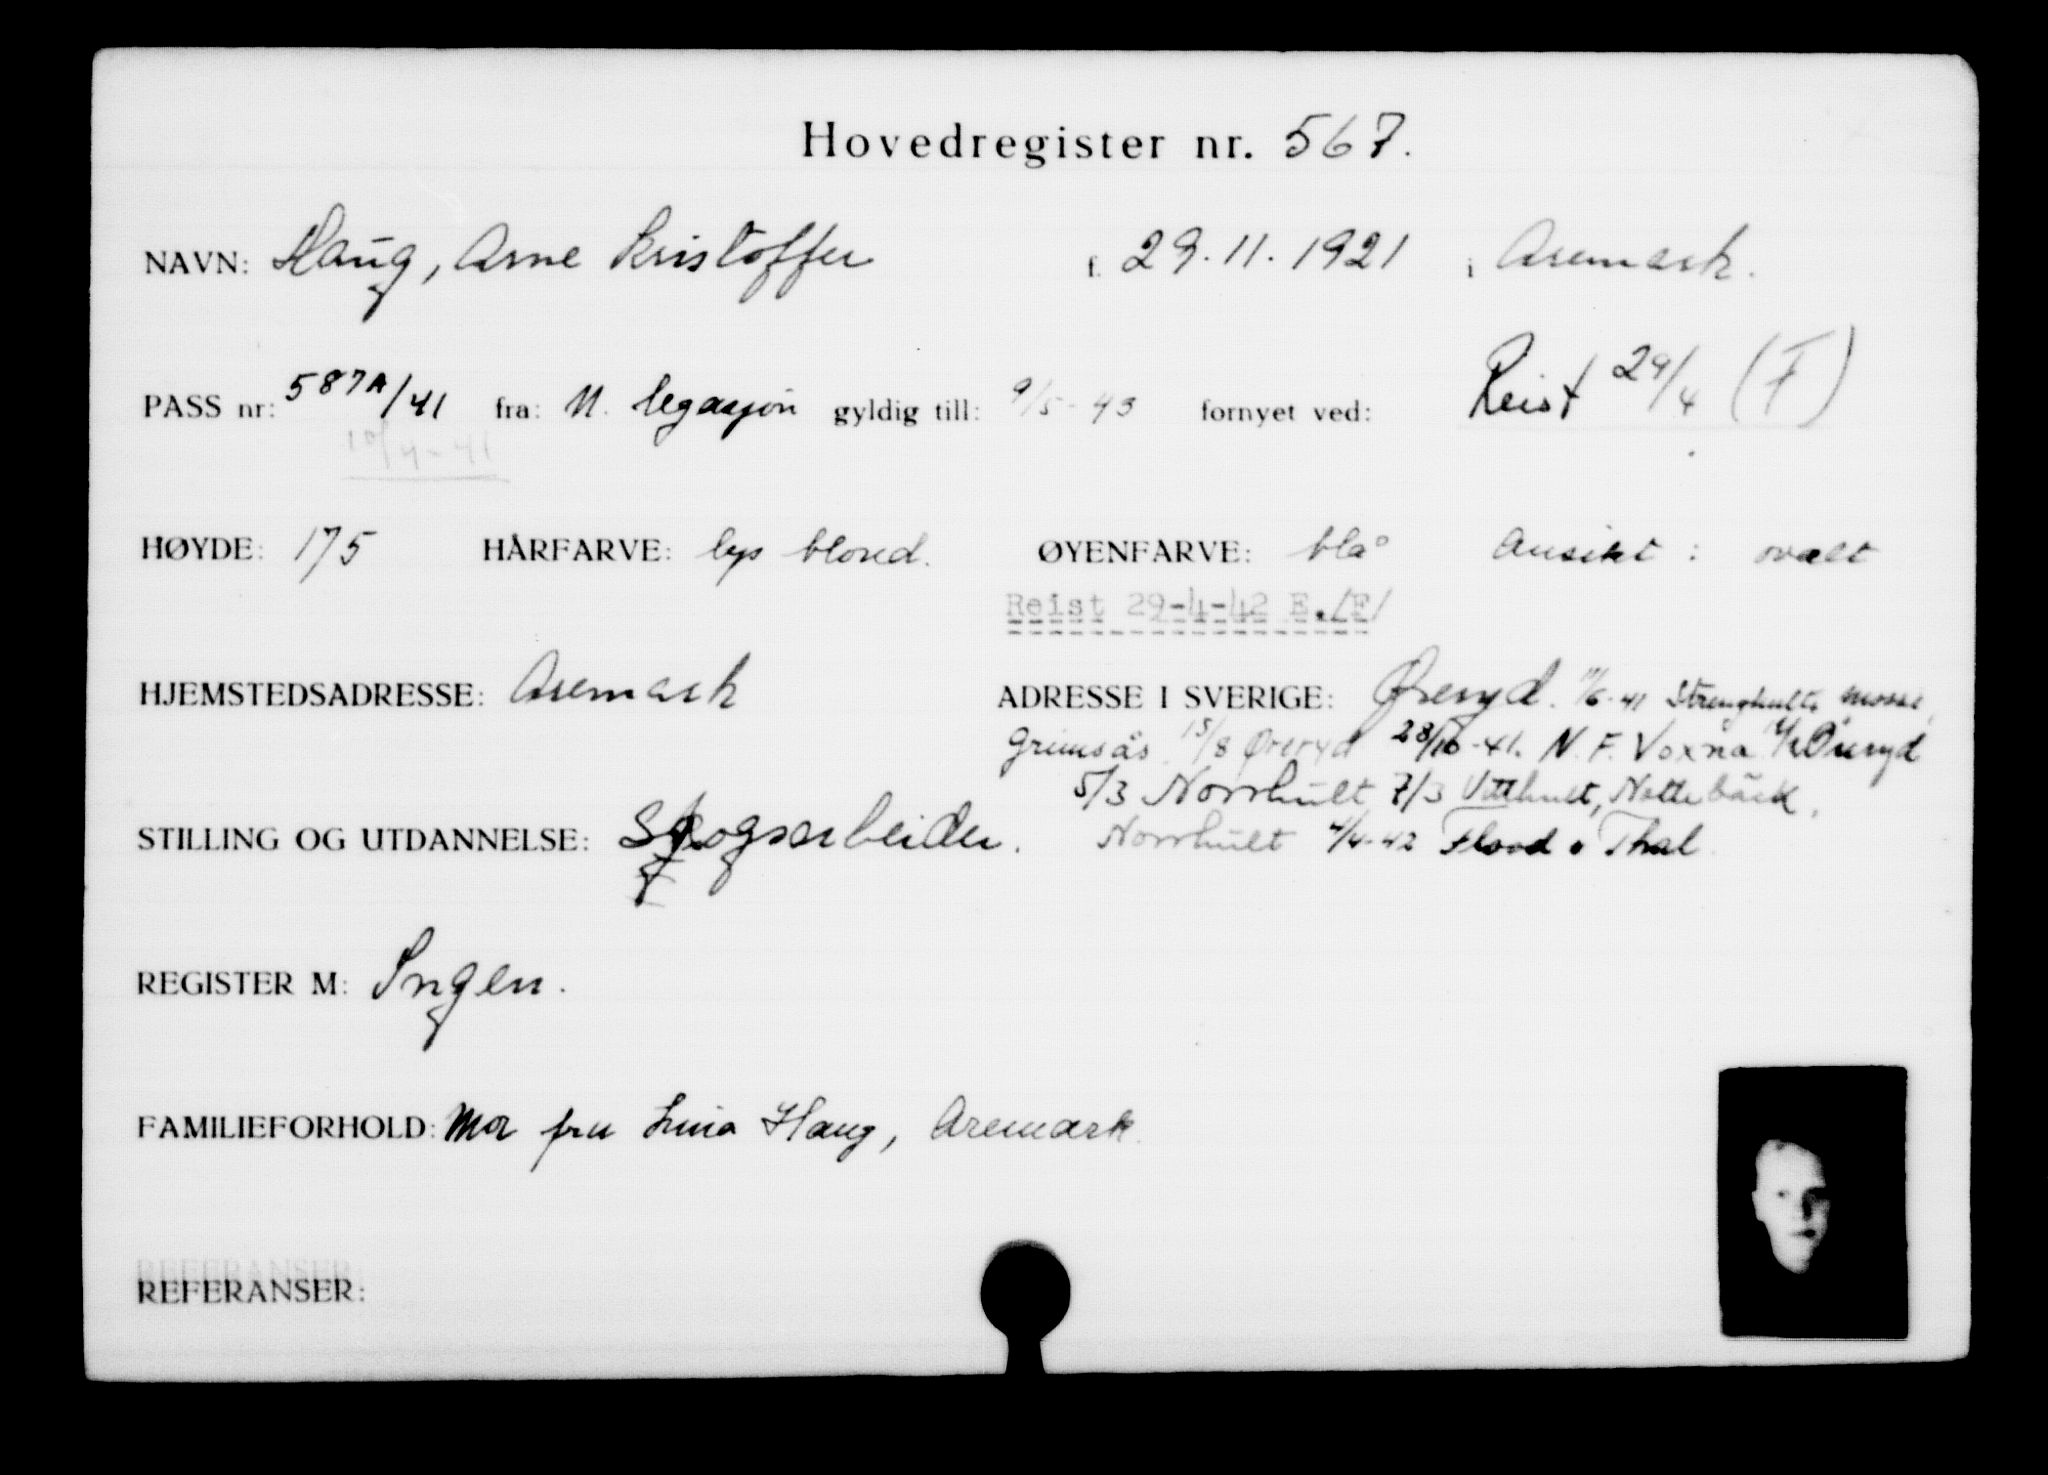 Hovedregister nr. 567.
NAVN: Haug, Arne Kristoffer f. 29.11.1921 i Aremark.
PASS nr: 587A/41 fra: N. legasjon gyldig till: 9/5-43 fornyet ved: Reist 29/4 (F)
10/4-41
HØYDE: 175 HÅRFARVE: lys blond. ØYENFARVE: blå Ansikt: ovalt
Reist 29-4-42 E./F/
HJEMSTEDSADRESSE: Aremark ADRESSE I SVERIGE: Øreryd. 11/6-41 Strenghults mosse,
Grimsås 15/8 Øreryd 28/10-41. N.F. Voxna Öreryd
5/3 Norrhult 7/3 Vitthult, Nottebäck,
STILLING OG UTDANNELSE: Skogsarbeider. Norrhult 4/4-42 Flood o Thal.
REGISTER M: Ingen.
FAMILIEFORHOLD: Mor fru Lina Haug, Aremark.
REFERANSER: